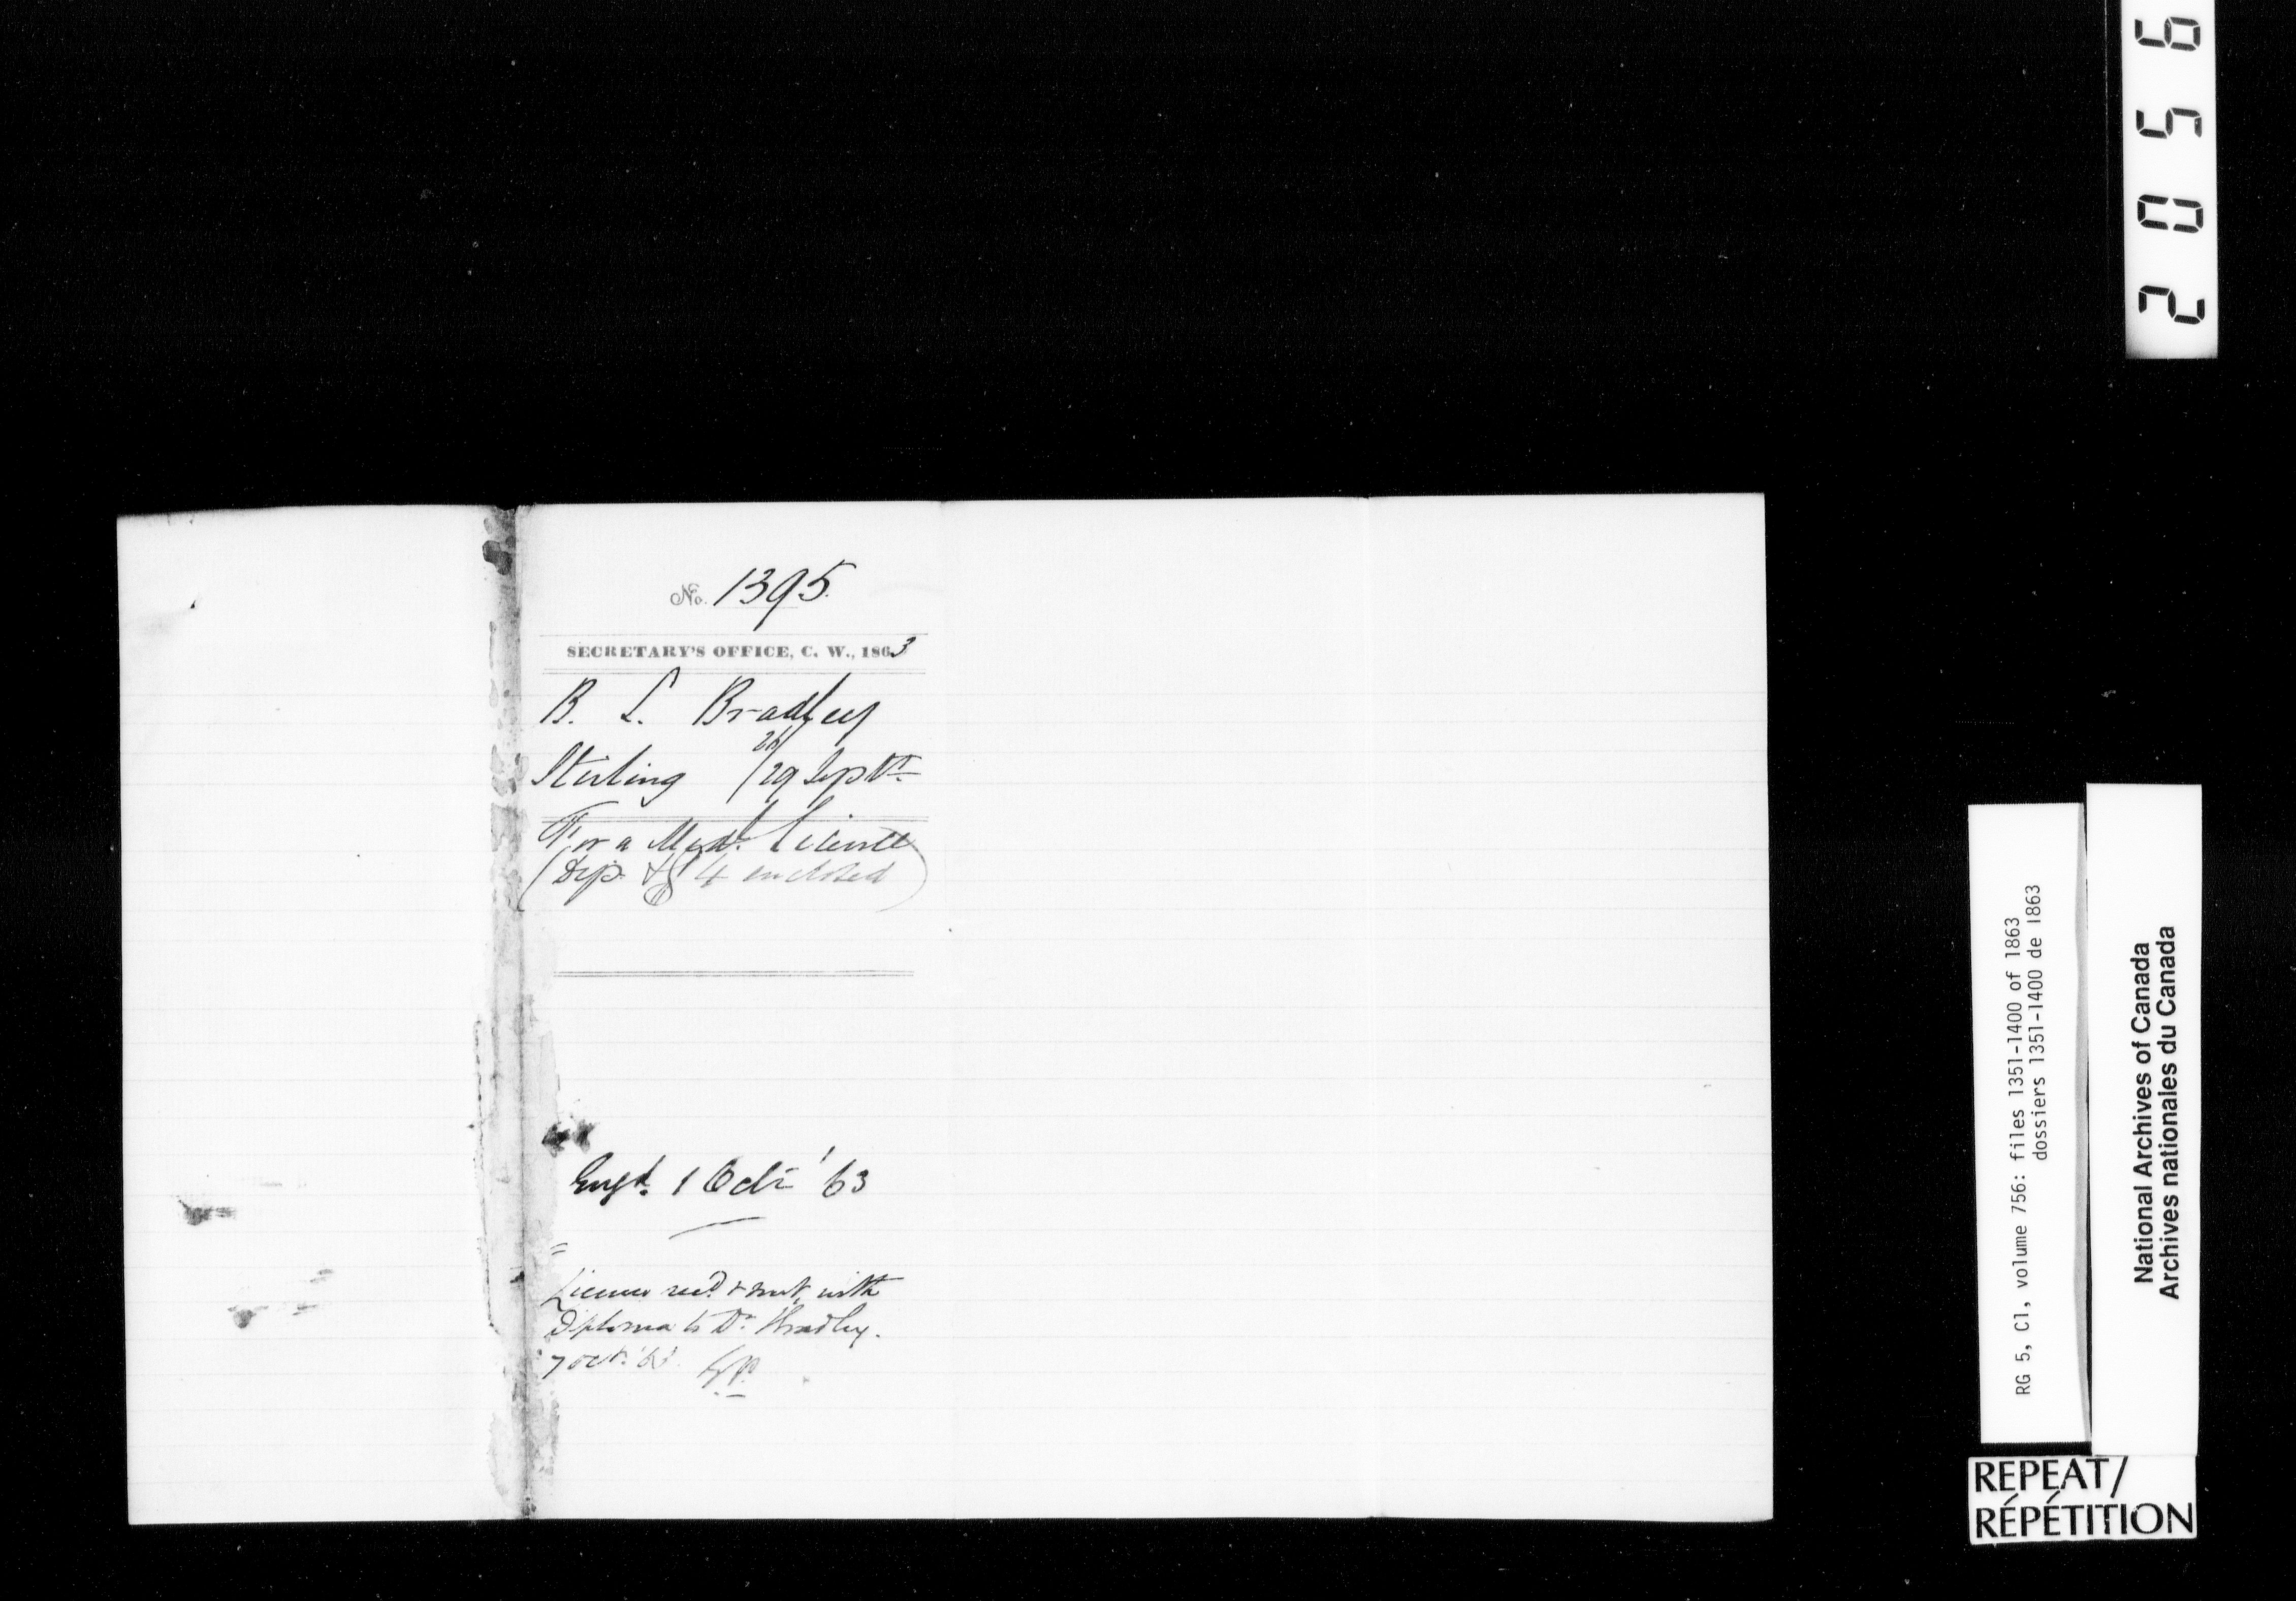 No. 1395.
SECRETARY'S OFFICE, C. W., 1863
B. L. Bradley
Stirling 26/29 Septr.
For a Med. Licence
(Dip. & $4 enclosed)
1 Octr '63
License recd. & sent, with
Diploma to Dr. Bradley.
7 Oct. '63.
2056
RG 5, C1, volume 756: files 1351-1400 of 1863
dossiers 1351-1400 de 1863
National Archives of Canada
Archives nationales du Canada
REPEAT/
RÉPÉTITION